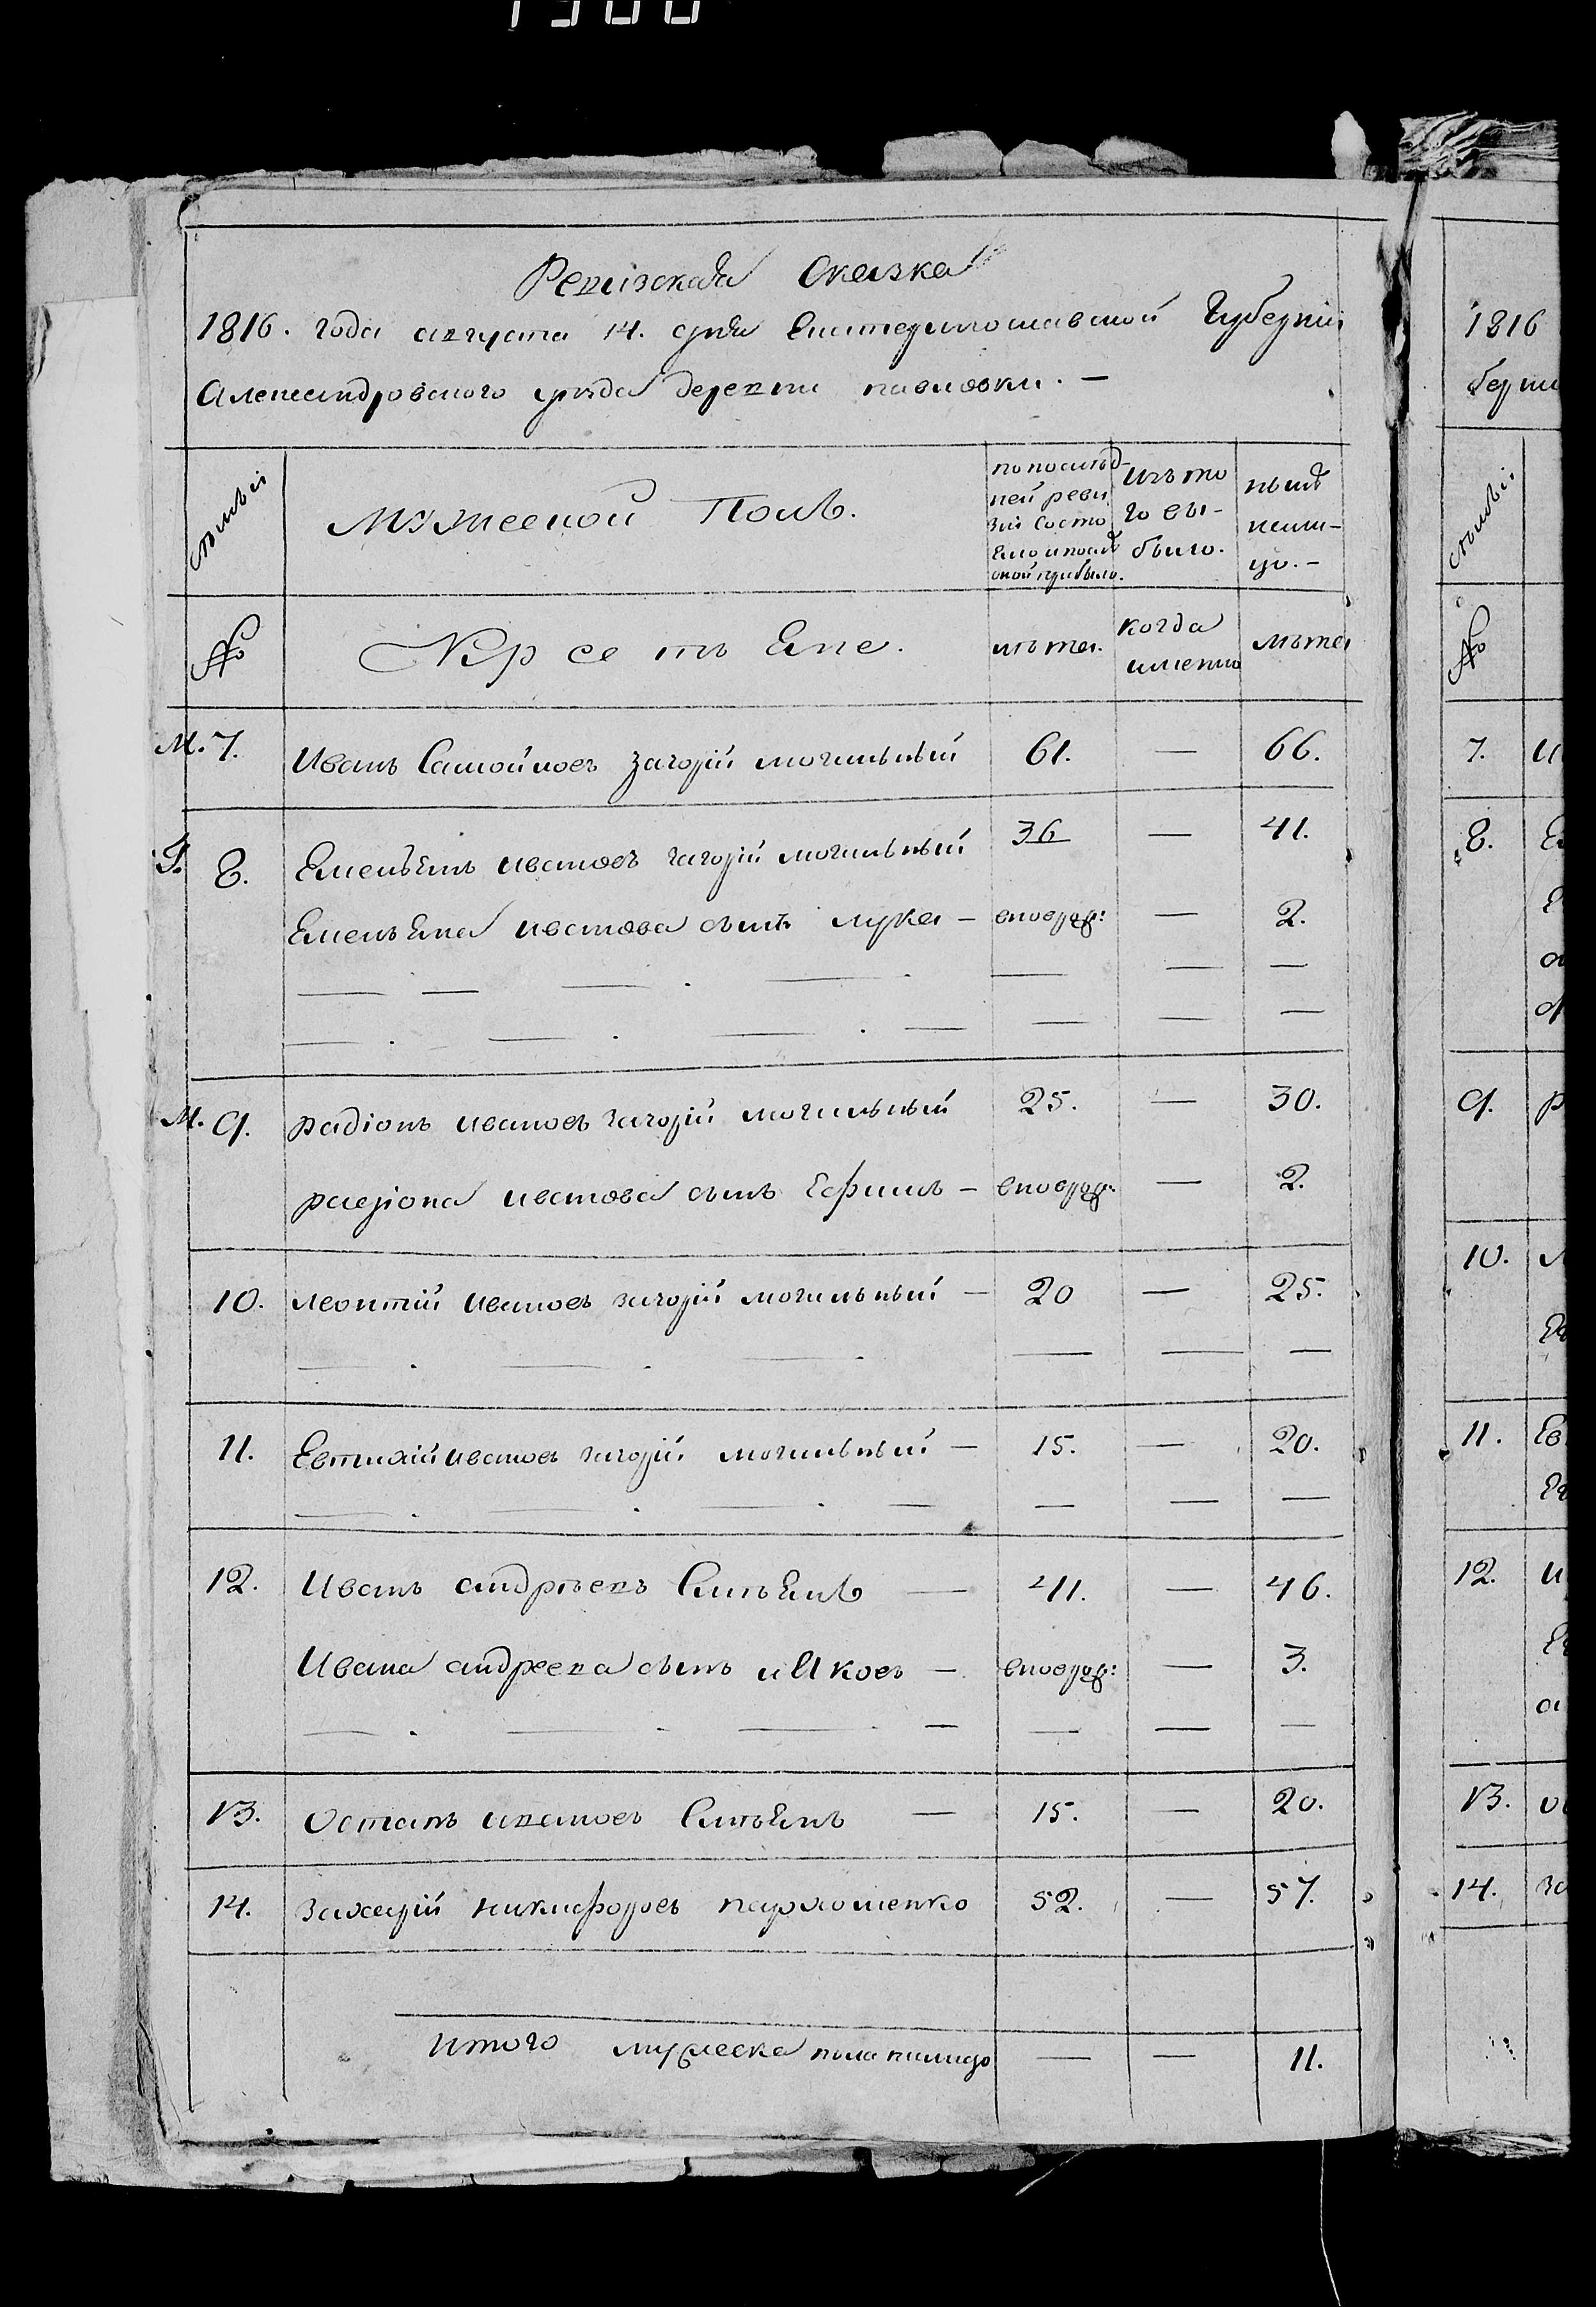 1300
Ревизская Сказка
1816. года августа 14. дня Екатеринославской Губернии
Александровского уезда деревни павловки. –
семьи
Мужеской Полъ.
по послѣд-
ней реви
зіи состо
яло и послѣ
оной прибыло.
Изъ то
го вы-
было.
нынѣ
на ли-
цо. –
№
Крестьяне.
лѣта.
когда
именно
лѣта
М. 7. Иванъ Самойловъ загорій могильный 61. — 66.
8. Емельянъ ивановъ загорій могильный 36 — 41.
Емельяна иванова сынъ лука – вновьрож: — 2.
М. 9. радіонъ ивановъ загорій могильный 25. — 30.
радіона иванова сынъ Ефимъ – вновьрож: — 2.
10. леонтій ивановъ загорій могильный – 20 — 25.
11. Евтихій ивановъ загорій могильный – 15. — 20.
12. Иванъ андрѣевъ — 41. — 46.
Ивана андреева сынъ – вновьрож: — 3.
13. Остапъ ивановъ — 15. — 20.
14. Захарій никифоровъ пархоменко 52. — 57.
Итого мужеска пола налицо — — 11.
1816
берни
семьи
№
7.
8.
9.
10.
11.
12.
13.
14.